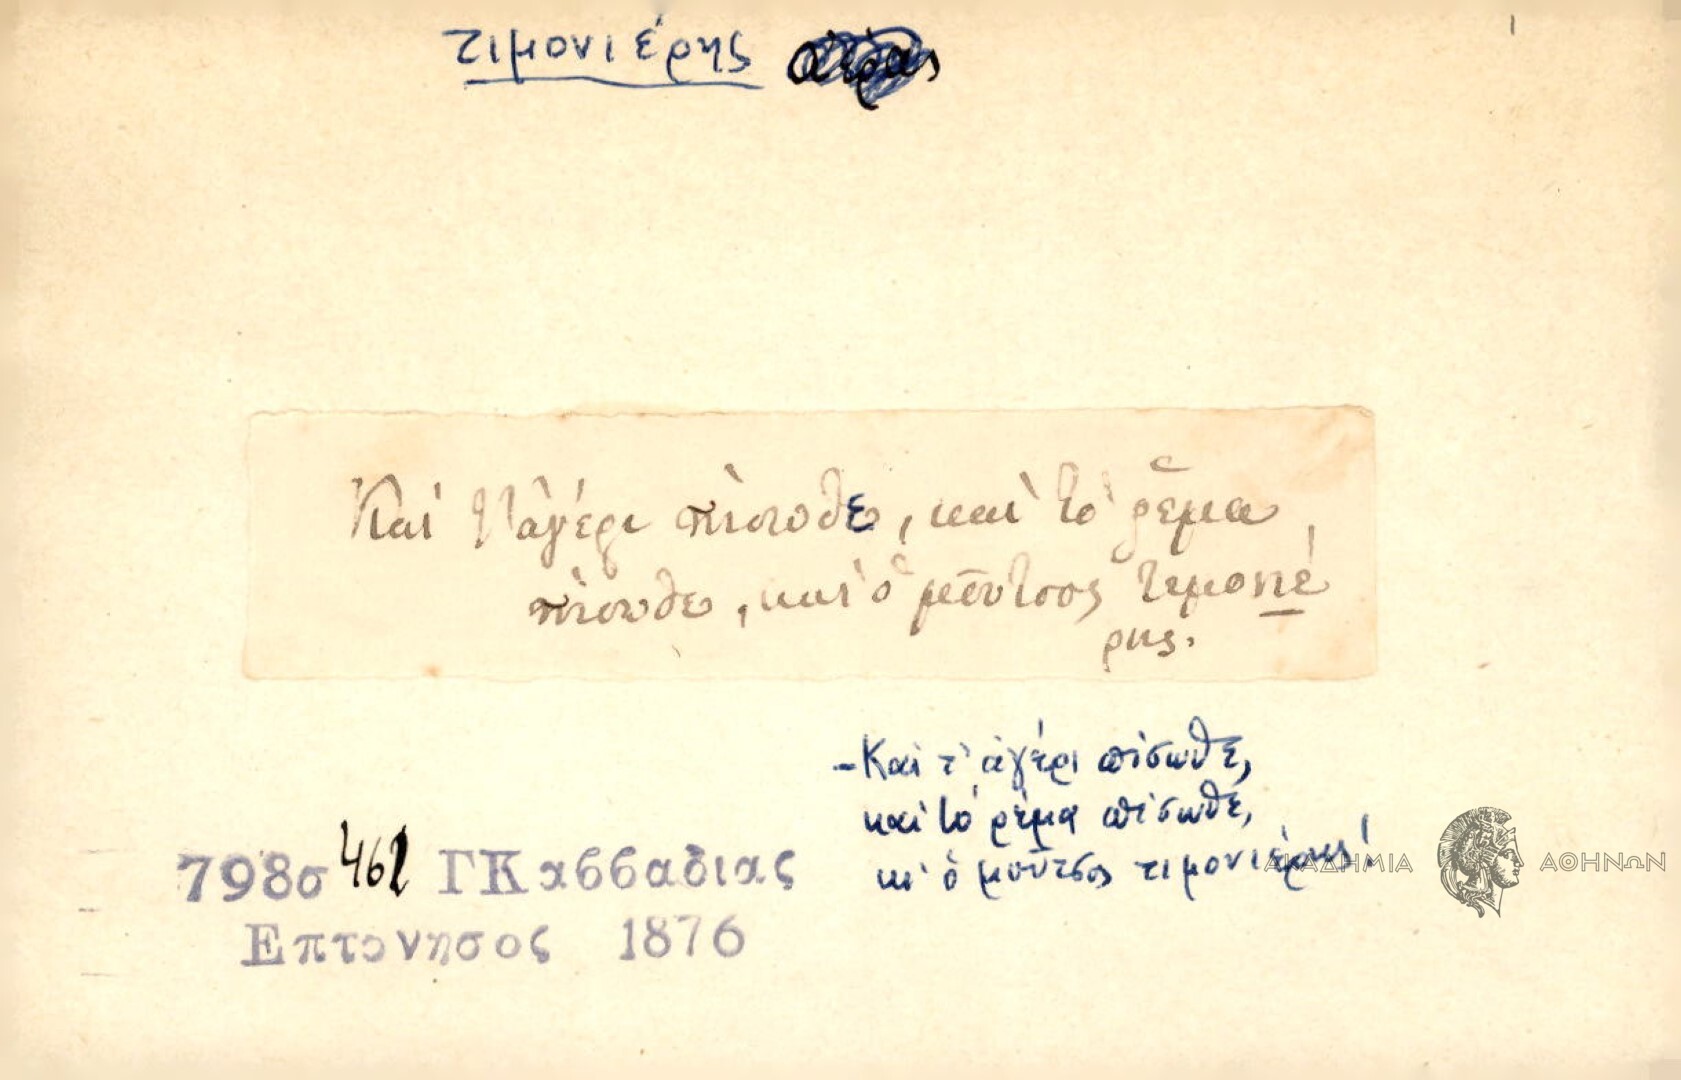 τιμονιέρης αέρας
Και τ' αγέρι πίσωθε, και το ρέμα
πίσωθε, και ο μούτσος τιμονιέ
ρης.
-Καὶ τ' ἀγέρι πίσωθε,
καὶ τὸ ρέμα πίσωθε,
κι' ὁ μοῦτσος τιμονιέρης!
798σ 461 ΓΚασσαδιας
Επτονησος 1876
ΑΚΑΔΗΜΙΑ ΑΘΗΝΩΝ